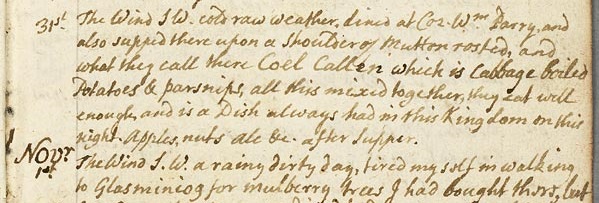 31st The Wind S.W. cold raw weather, dined at Coz. Wm Parry, and
also supped there upon a Shoulder of Mutton rosted, and
what they call there Coel Callen which is Cabbage boiled
Potatoes & parsnips, all this mixed together, they eat well
enough, and is a Dish always had in this Kingdom on this
night. Apples, nuts ale &c. after supper.
Novr. 1st The Wind S.W. a rainy dirty day, tired my self in walking
to Glasminiog for mulberry trees I had bought there, but